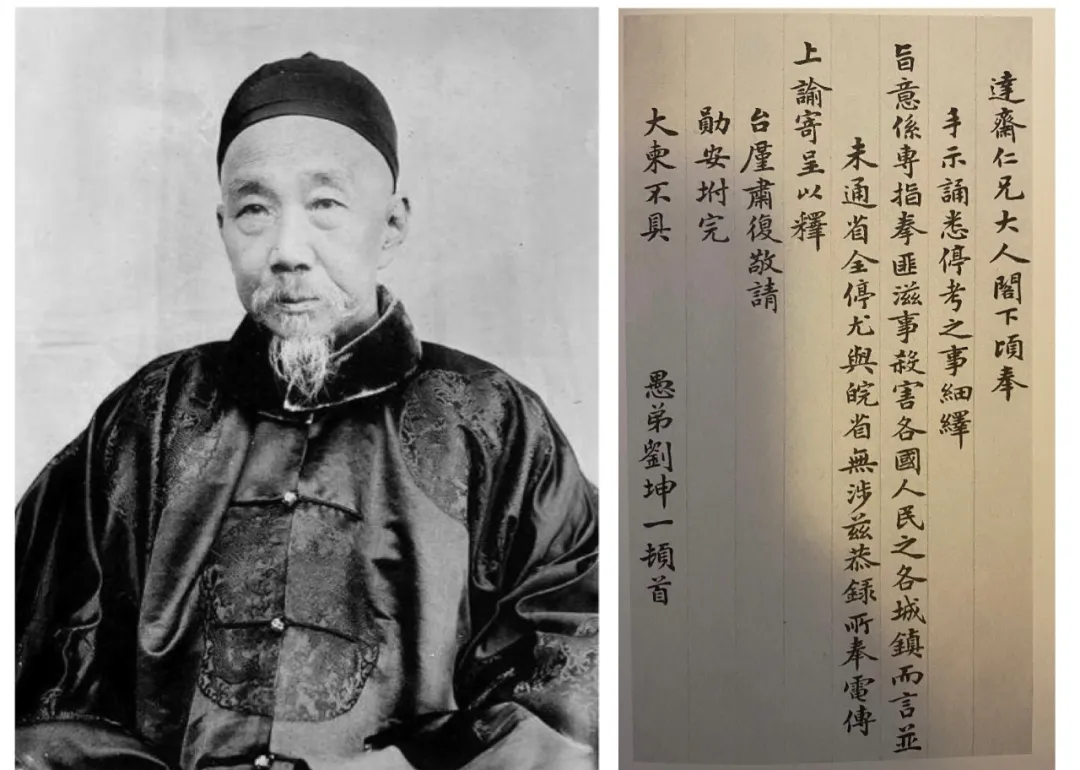 達齋仁兄大人閣下頃奉
手示誦悉停考之事細繹
旨意係專指拳匪滋事殺害各國人民之各城鎮而言並
未通省全停尤與皖省無涉茲恭錄所奉電傳
上諭寄呈以釋
台廑肅復敬請
勛安坿完
大柬不具 愚弟劉坤一頓首